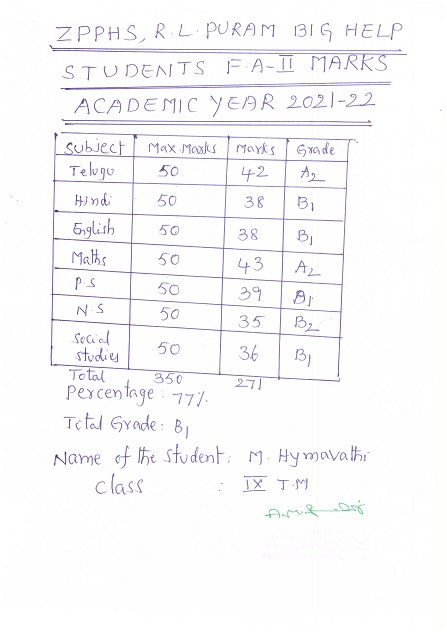 ZPPHS, R.L. PURAM BIG HELP
STUDENTS F.A-II MARKS
ACADEMIC YEAR 2021-22
Subject Max.Marks Marks Grade
Telugu 50 42 A2
Hindi 50 38 B1
English 50 38 B1
Maths 50 43 A2
P.S 50 39 B1
N.S 50 35 B2
Social studies 50 36 B1
Total 350 271
Percentage: 77%
Total Grade: B1
Name of the Student: M. Hymavathi
Class : IX T.M